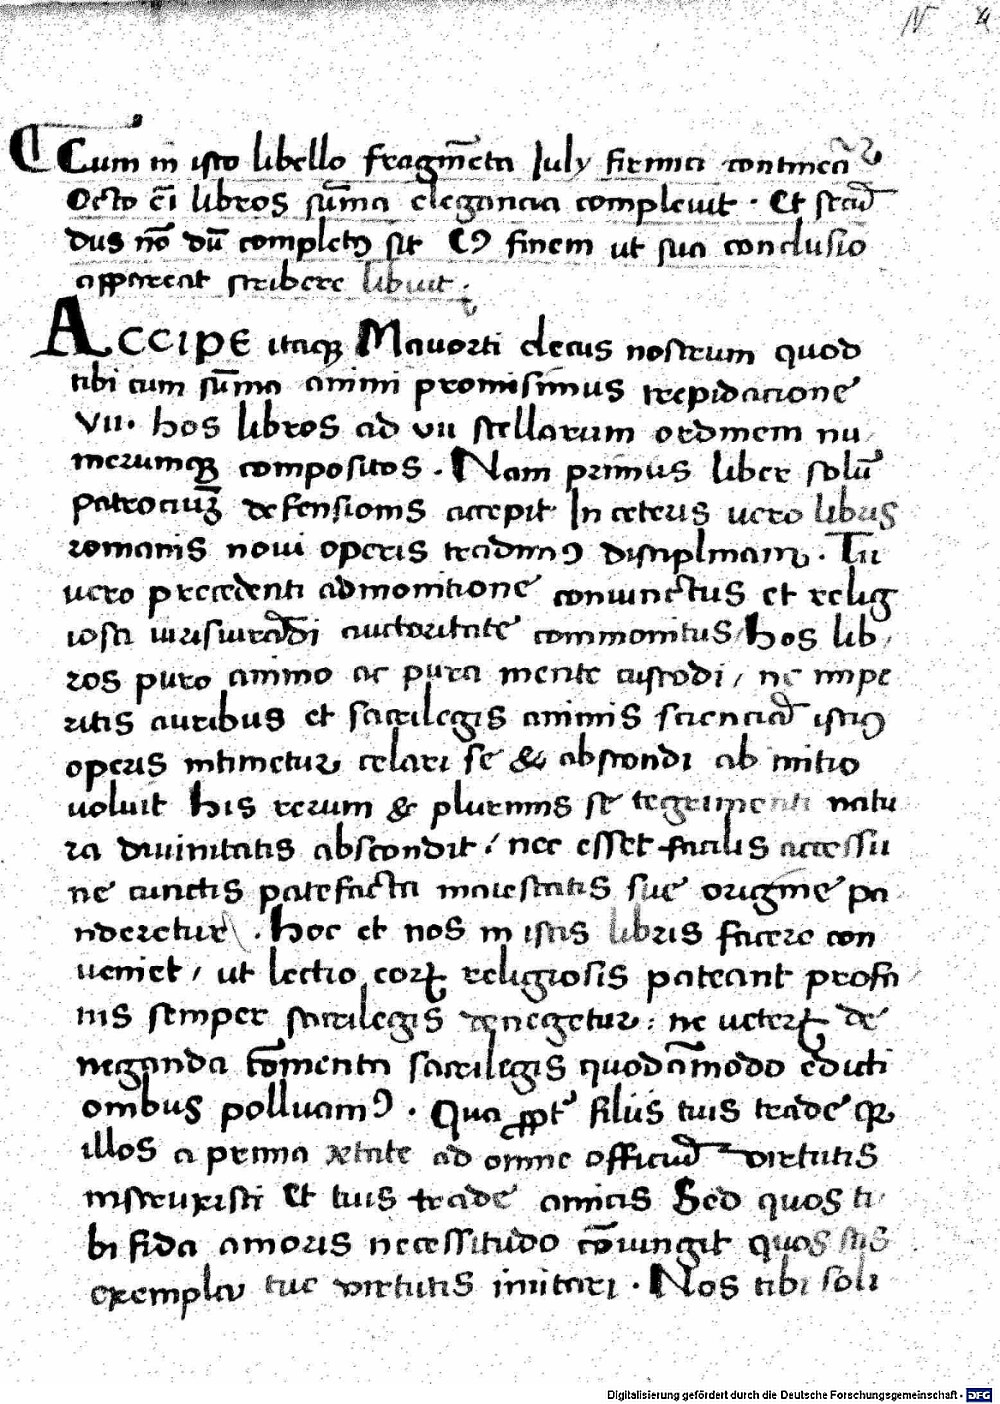 N 4
Cum in isto libello fragm̄eta Iuly firmici contineāt᷑
Octo eī libros sūma elegancia compleuit · Et secūd
dus nō dū complet9 sit C9 finem ut sua conclusio
appareat scribere libuit ·
ACCIPE itaqꝫ Mauorti decus nostrum quod
tibi cum sūma animi promisimus trepidatione
VII · hos libros ad VII stellarum ordinem nu
merumqꝫ compositos · Nam primus liber solū
patrociniūꝫ defensionis accepit In ceteris uero libris
romanis noui operis tradim9 disciplinam · Tu
uero precedenti admonitione coniunctus et relig
iosa iurisiurādi auctoritate commonitus / hos lib
ros puro animo ac pura mente custodi / ne impe
ritis auribus et sacrilegis animis scienciā isti9
operis intimetur celari se & abscondi ab initio
uoluit his rerum & plurimis se tegimenti natu
ra diuinitatis abscondit / nec esset facilis accessu
ne cunctis patefacta maiestatis sue origine pa
nderetur · hoc et nos in istis libris facere con
ueniet / ut lectio eorꝝ religiosis pateant profa
nis semper sacrilegis denegetur : ne ueterꝝ de
neganda cōmenta sacrilegis quodāmodo edicti
ombus polluam9 · Qua ꝓpt᷑ filiis tuis trade qꝫ
illos a prima ætate ad omne officiū virtutis
instruxisti Et tuis trade amicis Sed quos ti
bi fida amoris necessitudo cōiungit quos scis
exemplū tue virtutis imitari · Nos tibi soli
Digitalisierung gefördert durch die Deutsche Forschungsgemeinschaft · DFG